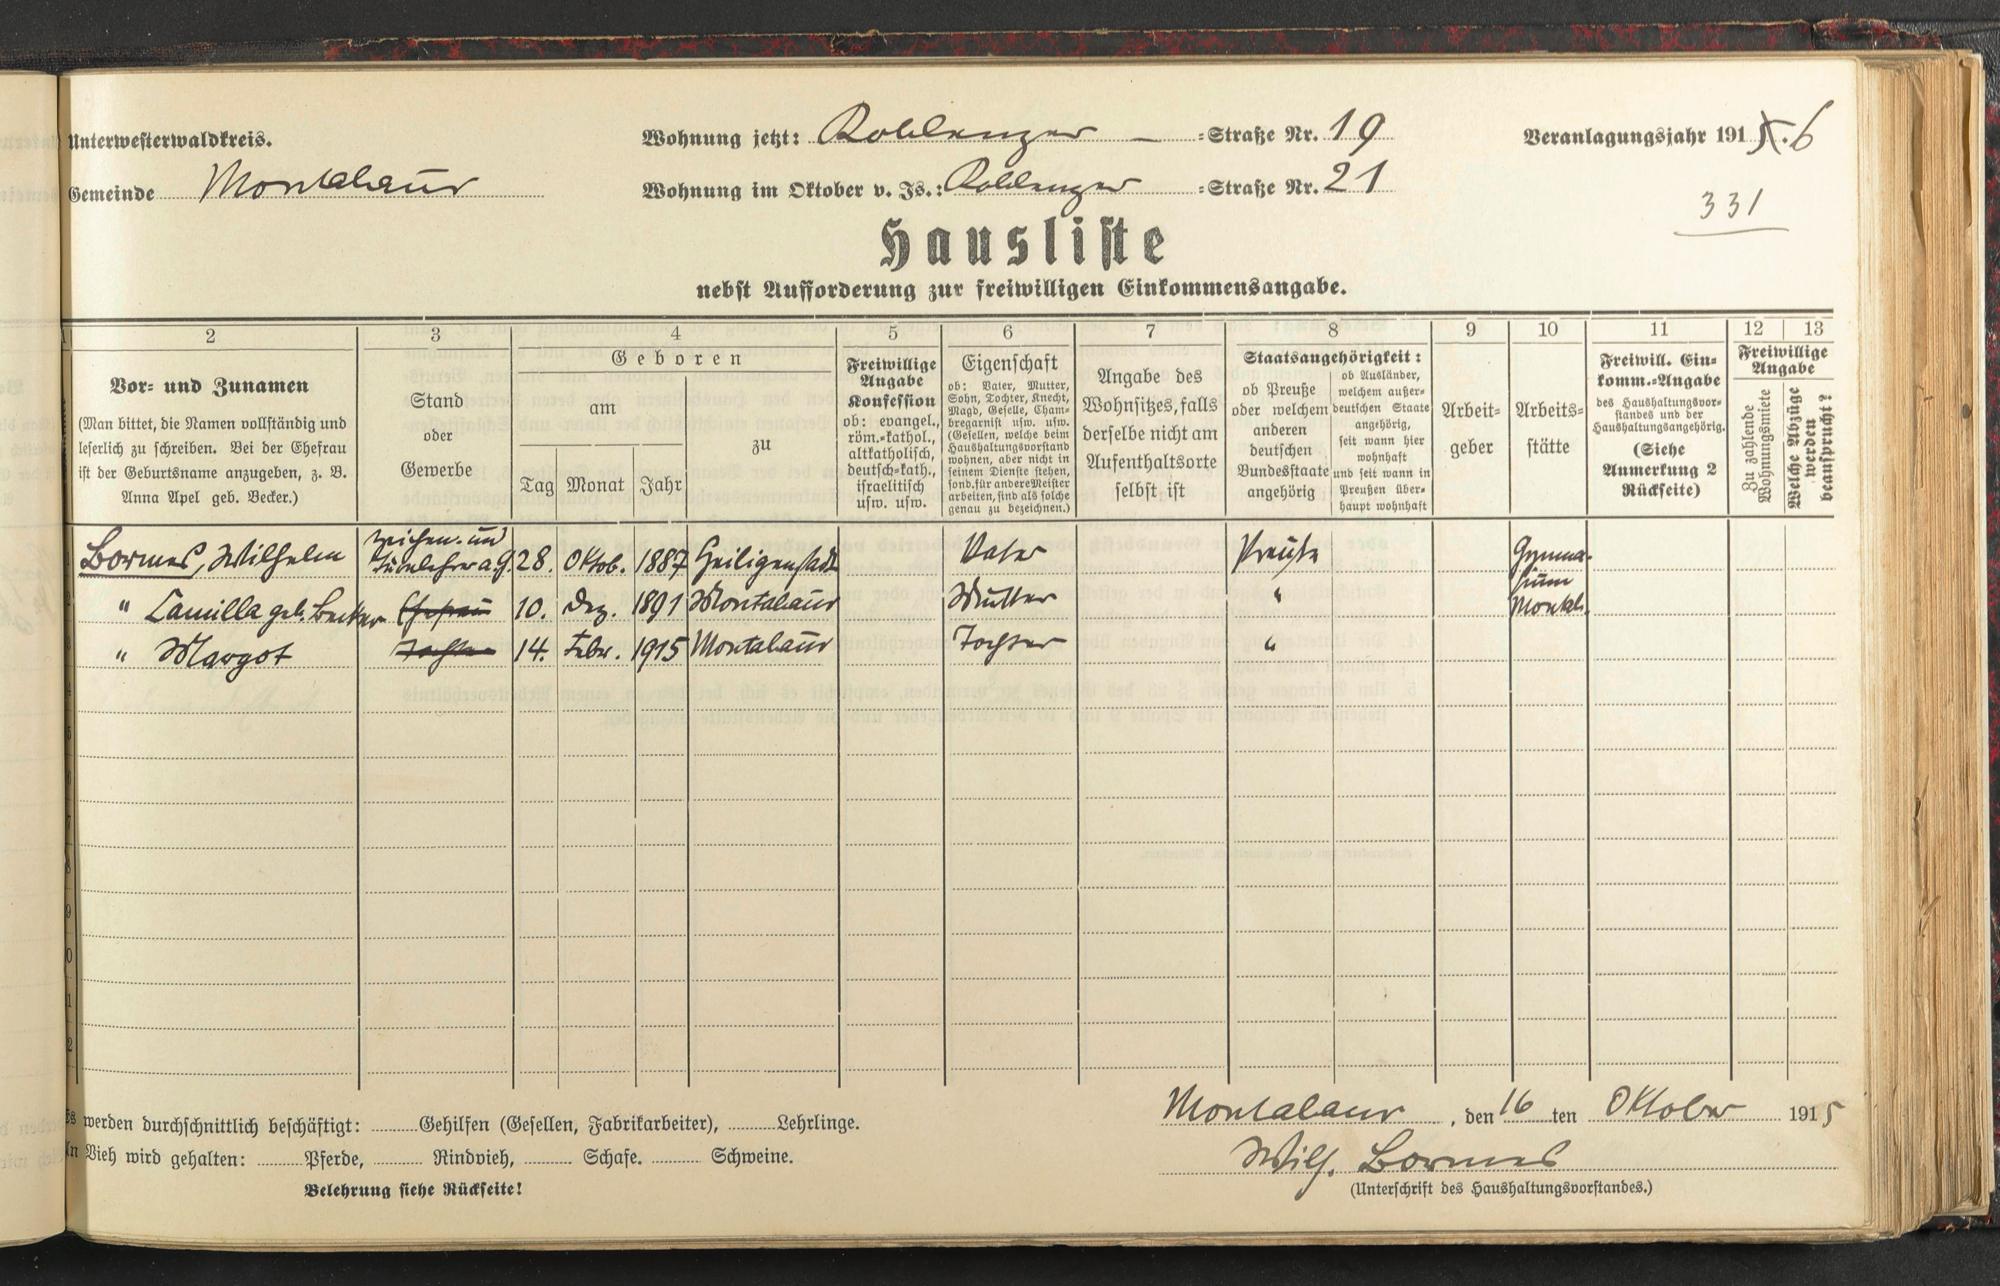 Unterwesterwaldkreis.
Gemeinde Montabaur
Wohnung jetzt: Koblenzer - =Straße Nr. 19
Wohnung im Oktober v. Js.: Koblenzer =Straße Nr. 21
Veranlagungsjahr 191 5. 6
331
Hausliste
nebst Aufforderung zur freiwilligen Einkommensangabe.
1 2 3 4 5 6 7 8 9 10 11 12 13
Vor= und Zunamen
(Man bittet, die Namen vollständig und
leserlich zu schreiben. Bei der Ehefrau
ist der Geburtsname anzugeben, z. B.
Anna Apel geb. Becker.)
Stand
oder
Gewerbe
Geboren
am
Tag Monat Jahr
zu
Freiwillige
Angabe
Konfession
ob: evangel.,
röm.=kathol.,
altkatholisch,
deutsch=kath.,
israelitisch
usw. usw.
Eigenschaft
ob: Vater, Mutter,
Sohn, Tochter, Knecht,
Magd, Geselle, Cham=
bregarnist usw. usw.
(Gesellen, welche beim
Haushaltungsvorstand
wohnen, aber nicht in
seinem Dienste stehen,
sond. für andere Meister
arbeiten, sind als solche
genau zu bezeichnen.)
Angabe des
Wohnsitzes, falls
derselbe nicht am
Aufenthaltsorte
selbst ist
Staatsangehörigkeit:
ob Preuße
oder welchem
anderen
deutschen
Bundesstaate
angehörig
ob Ausländer,
welchem außer=
deutschen Staate
angehörig,
seit wann hier
wohnhaft
und seit wann in
Preußen über=
haupt wohnhaft
Arbeit=
geber
Arbeits=
stätte
Freiwill. Ein=
komm.=Angabe
des Haushaltungsvor=
standes und der
Haushaltungsangehörig.
(Siehe
Anmerkung 2
Rückseite)
Freiwillige
Angabe
Zu zahlende
Wohnungsmiete
Welche Abzüge
werden
beansprucht?
Bormes, Wilhelm Zeichen- und Turnlehrer a. G. 28. Oktob. 1887 Heiligenstadt Vater Preuße Gymna-
sium
" Camilla geb. Becker Ehefrau 10. Dez. 1891 Montabaur Mutter " Montab.
" Margot Tochter 14. Febr. 1915 Montabaur Tochter "
werden durchschnittlich beschäftigt: Gehilfen (Gesellen, Fabrikarbeiter), Lehrlinge.
Vieh wird gehalten: Pferde, Rindvieh, Schafe. Schweine.
Belehrung siehe Rückseite!
Montabaur, den 16 ten Oktober 1915
Wilh. Bormes
(Unterschrift des Haushaltungsvorstandes.)